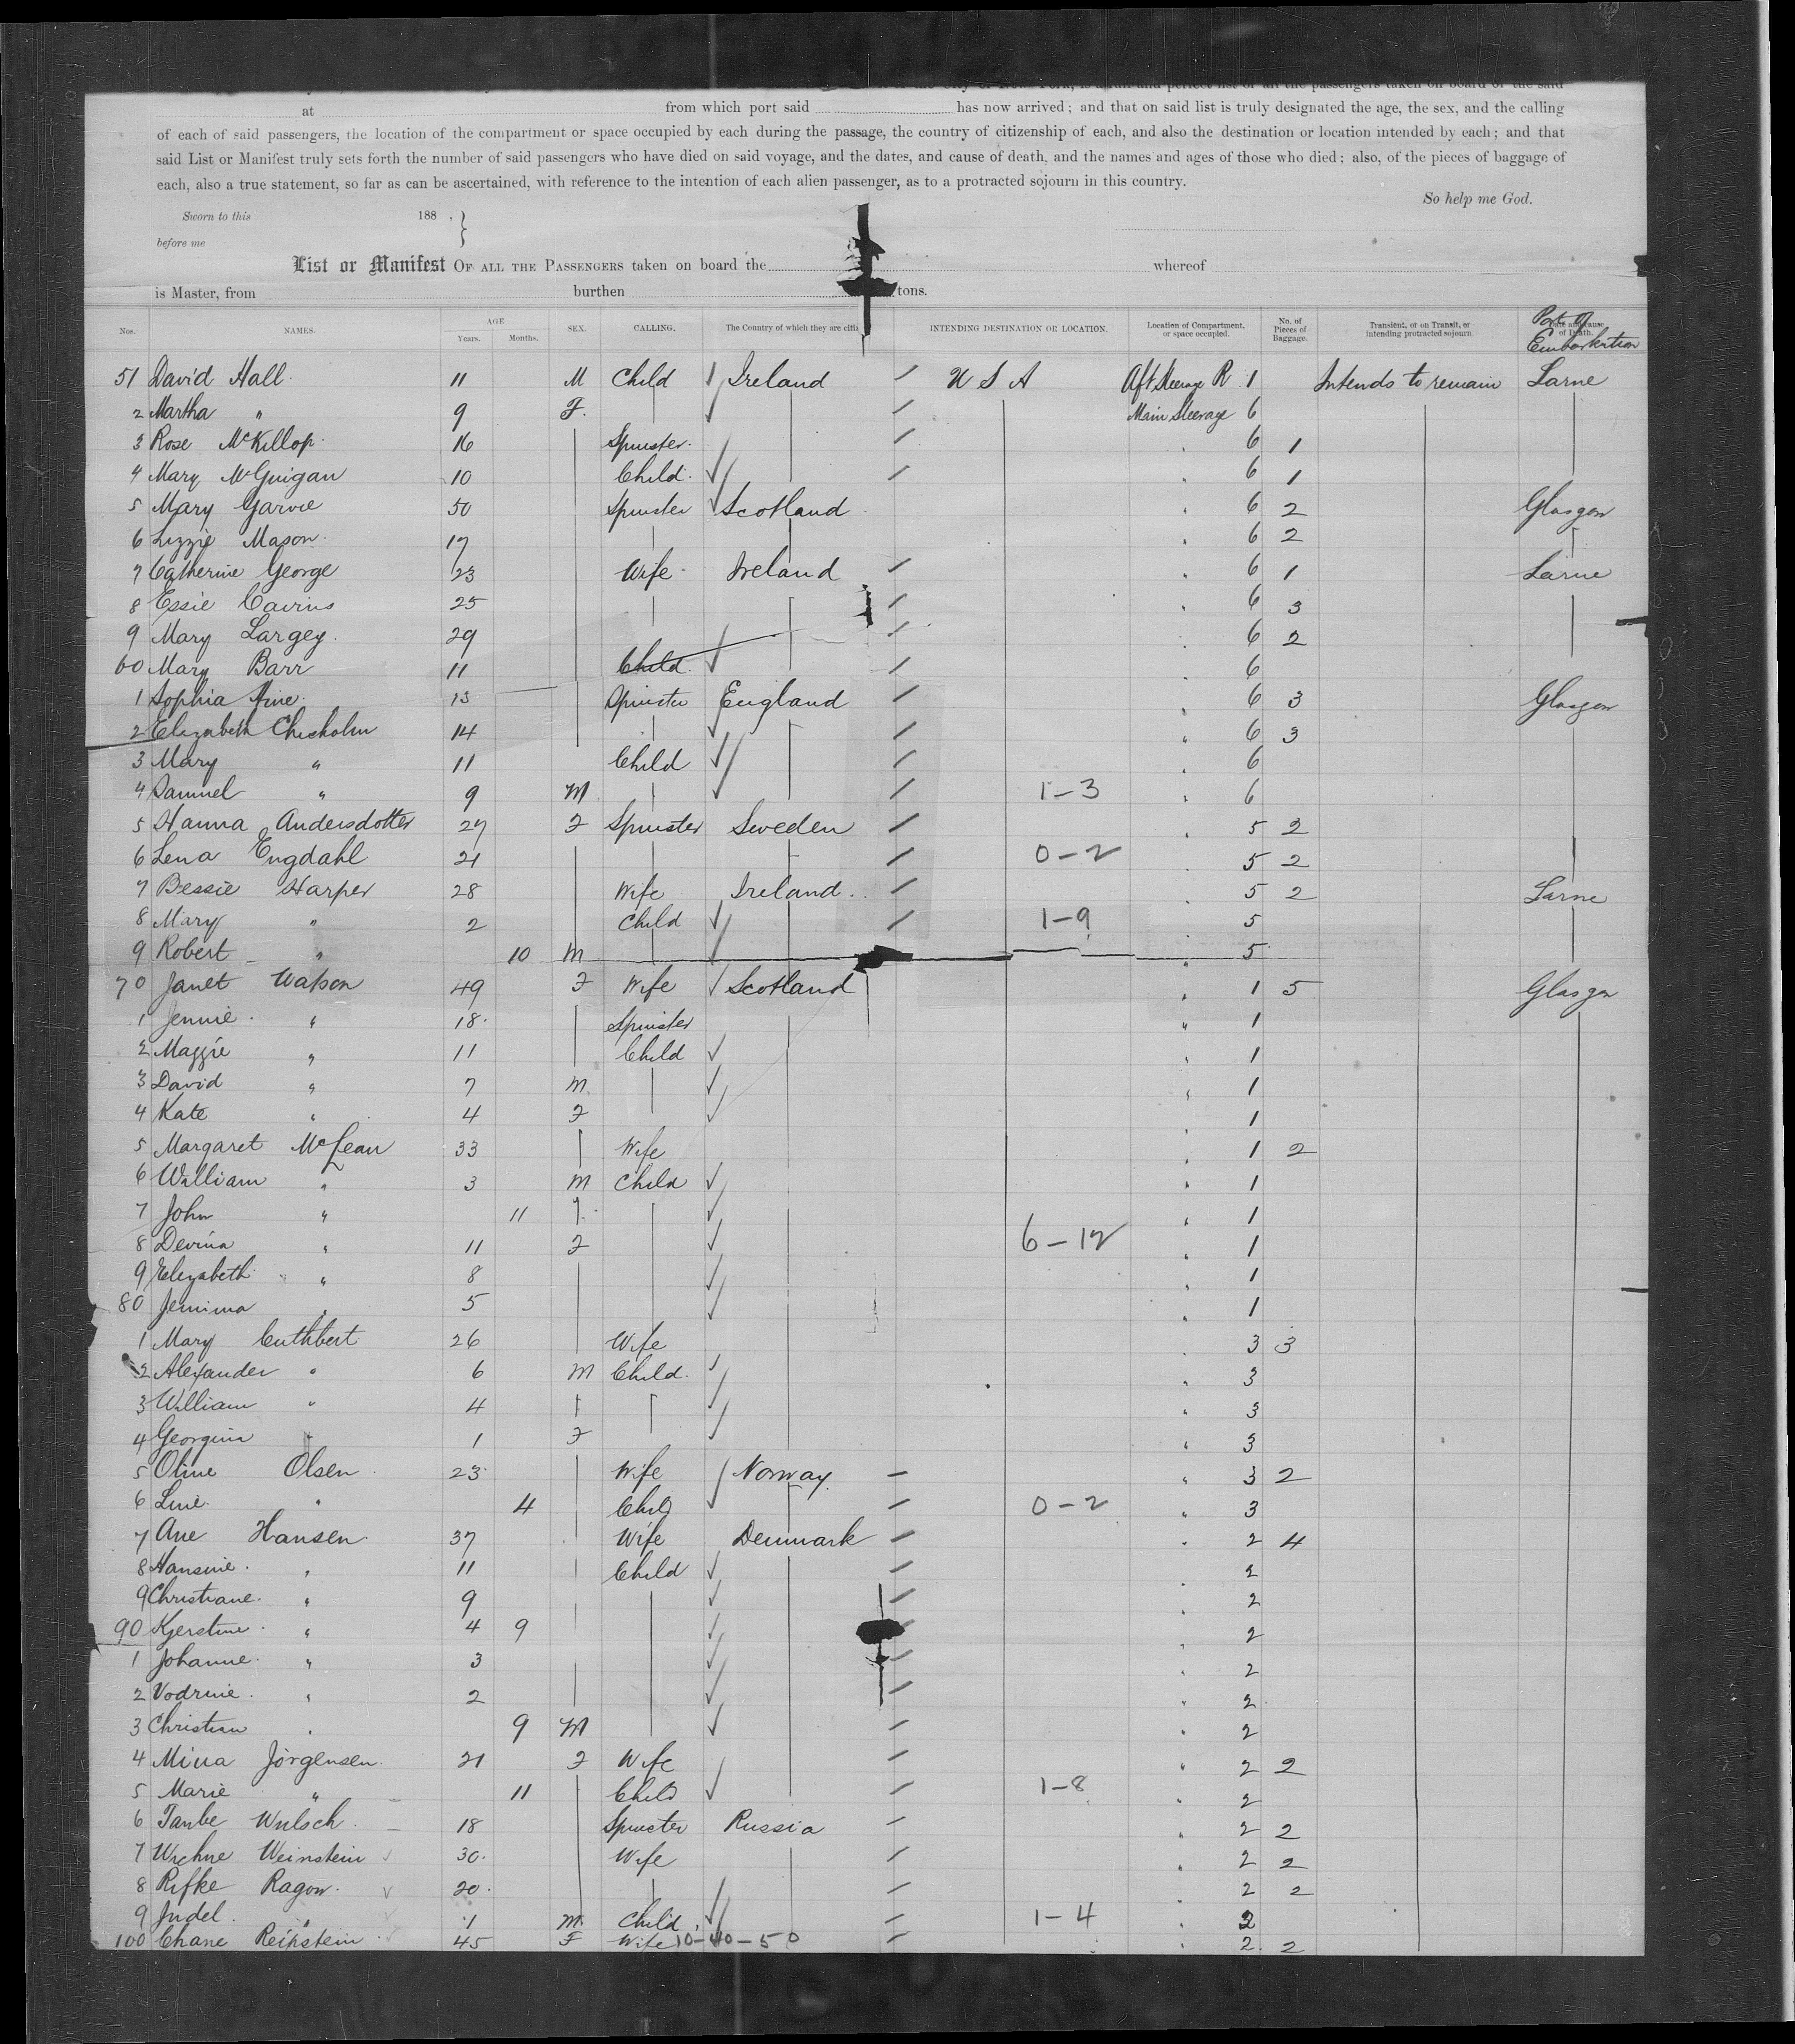 at from which port said has now arrived; and that on said list is truly designated the age, the sex, and the calling
of each of said passengers, the location of the compartment or space occupied by each during the passage, the country of citizenship of each, and also the destination or location intended by each; and that
said List or Manifest truly sets forth the number of said passengers who have died on said voyage, and the dates, and cause of death, and the names and ages of those who died; also, of the pieces of baggage of
each, also a true statement, so far as can be ascertained, with reference to the intention of each alien passenger, as to a protracted sojourn in this country.
So help me God.
Sworn to this 188 , }
before me
List or Manifest OF ALL THE PASSENGERS taken on board the whereof
is Master, from burthen tons.
Nos. NAMES. AGE Years. Months. SEX. CALLING. The Country of which they are citi INTENDING DESTINATION OR LOCATION. Location of Compartment, or space occupied. No. of Pieces of Baggage. Transient, or on Transit, or intending protracted sojourn. Port of Embarkation
51 David Hall 11 M Child Ireland U S A Aft Steerage R 1 Intends to remain Larne
2 Martha " 9 F. Main Steerage 6
3 Rose McKillop 16 Spinster 6 1
4 Mary McGuigan 10 Child 6 1
5 Mary Garvie 50 Spinster Scotland 6 2 Glasgow
6 Lizzie Mason 17 6 2
7 Catherine George 23 Wife Ireland 6 1 Larne
8 Essie Cairins 25 6 3
9 Mary Largey 29 6 2
60 Mary Barr 11 Child 6
1 Sophia 13 Spinster England 6 3 Glasgow
2 Elizabeth Chisholm 14 6 3
3 Mary " 11 Child 6
4 Samuel " 9 M 1-3 6
5 Hanna Andersdotter 27 F Spinster Sweden 5 2
6 Lena Engdahl 21 0-2 5 2
7 Bessie Harper 28 Wife Ireland 5 2 Larne
8 Mary " 2 Child 1-9 5
9 Robert " 10 M 5
70 Janet Watson 49 F Wife Scotland 1 5 Glasgow
1 Jennie " 18 Spinster 1
2 Maggie " 11 Child 1
3 David " 7 M 1
4 Kate " 4 F 1
5 Margaret McLean 33 Wife 1 2
6 William " 3 M Child 1
7 John " 11 1
8 Devina " 11 F 6-12 1
9 Elizabeth " 8 1
80 Jemima " 5 1
1 Mary Cuthbert 26 Wife 3 3
2 Alexander " 6 M Child 3
3 William " 4 3
4 Georgina " 1 F 3
5 Oline Olsen 23 Wife Norway 3 2
6 Line " 4 Child 0-2 3
7 Ane Hansen 37 Wife Denmark 2 4
8 Hansine " 11 Child 2
9 Christiane " 9 2
90 Kjerstine " 4 9 2
1 Johanne " 3 2
2 Vodrine " 2 2
3 Christian " 9 M 2
4 Mina Jörgensen 21 F Wife 2 2
5 Marie " 11 Child 1-8 2
6 Taube Wulsch 18 Spinster Russia 2 2
7 Wichne Weinstein 30 Wife 2 2
8 Rifke Ragow 20 2 2
9 Judel " 1 M Child 1-4 2
100 Chane Reikstein 45 F Wife 10-40-50 2 2